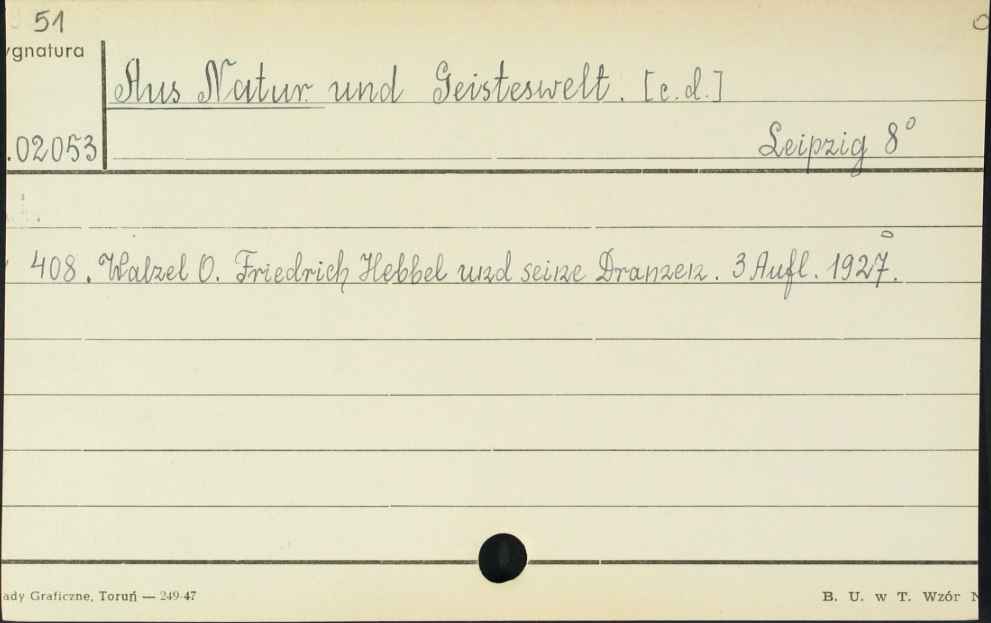 51
ygnatura
Aus Natur und Geisteswelt. [c.d.]
.02053
Leipzig 8°
408. Walzel O. Friedrich Hebbel und seine Dranzen. 3 Aufl. 1927.
ady Graficzne, Toruń — 249-47
B. U. w T. Wzór N